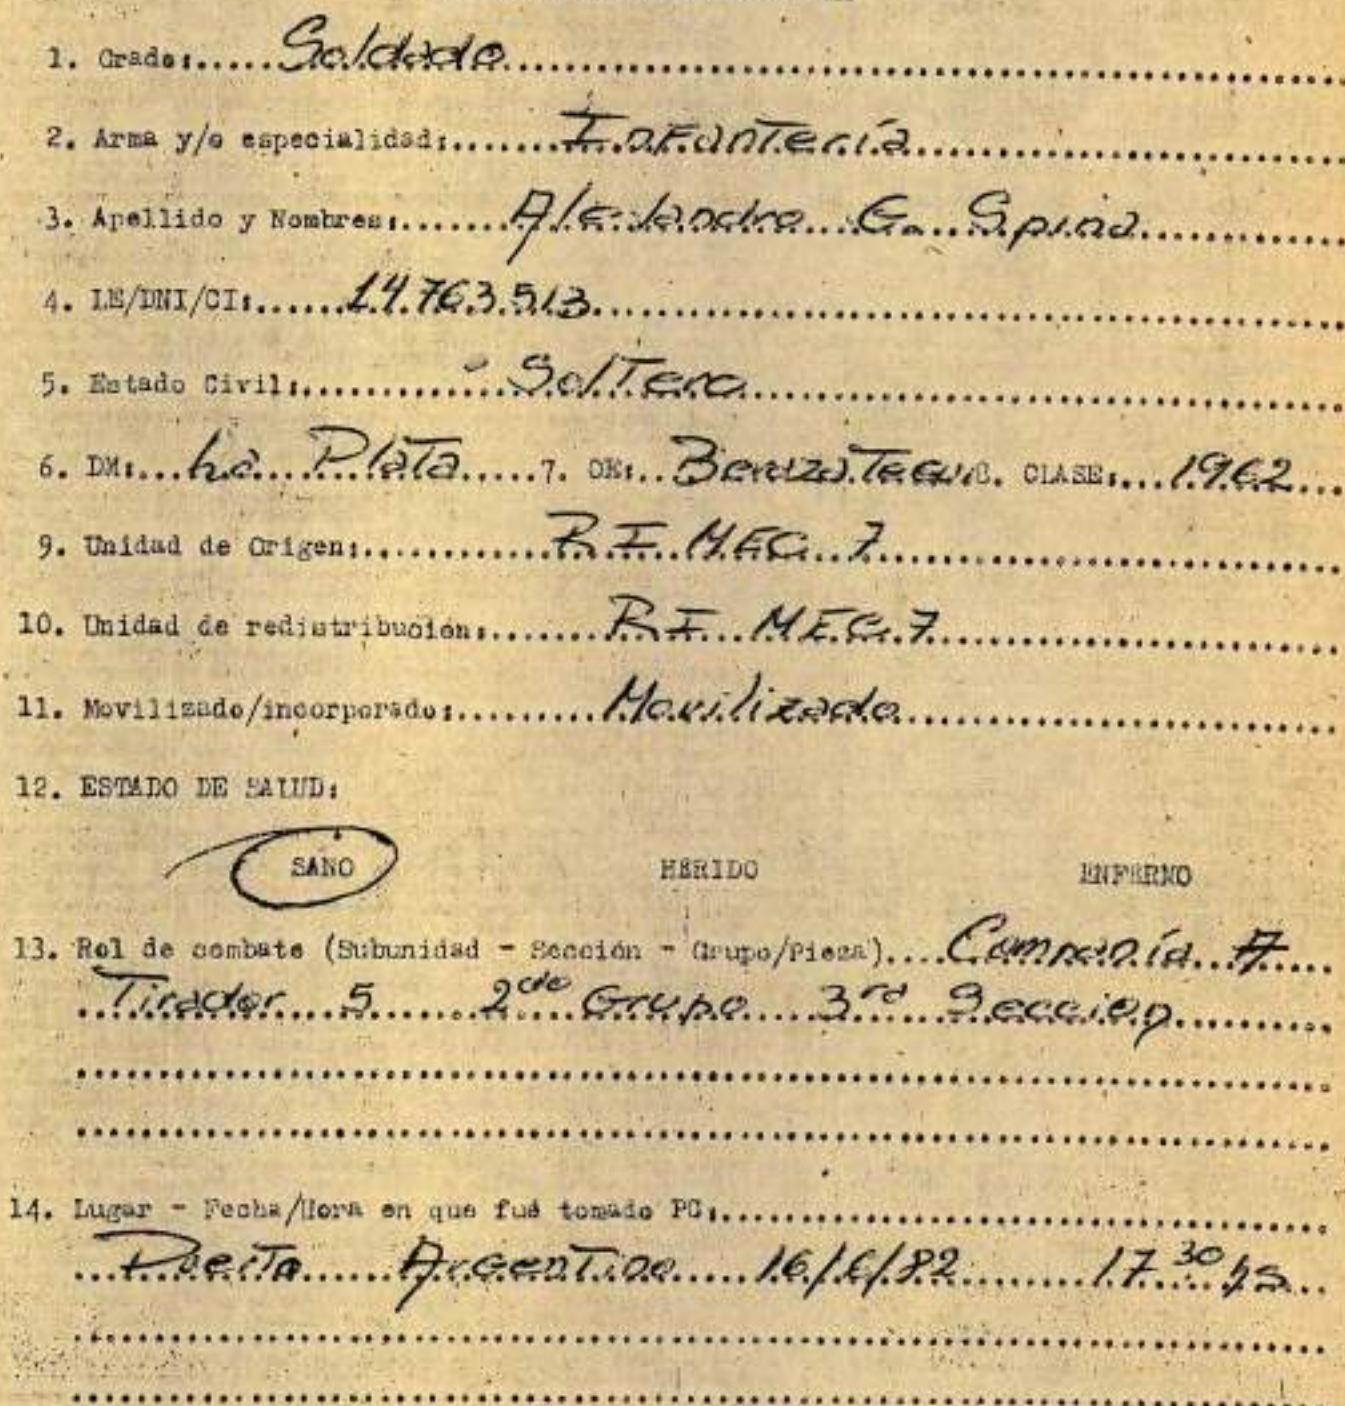 1. Grado:..... Soldado
2. Arma y/o especialidad:....... Infantería
3. Apellido y Nombres:....... Alejandro G. Spina
4. LE/DNI/CI:...... 14.763.513
5. Estado Civil:............ Soltero
6. DM:... La Plata..... 7. OE:.. 8. CLASE:... 1962...
9. Unidad de Origen:............ R I MEC 7
10. Unidad de redistribución:....... R I MEC 7
11. Movilizado/incorporado:......... Movilizado
12. ESTADO DE SALUD:
SANO HERIDO ENFERMO
13. Rol de combate (Subunidad - Sección - Grupo/Pieza).... Compañía A
Tirador 5 2do Grupo 3rd Seccion
14. Lugar - Fecha/Hora en que fué tomado PG:
Puerto Argentino 16/6/82 17 30 hs